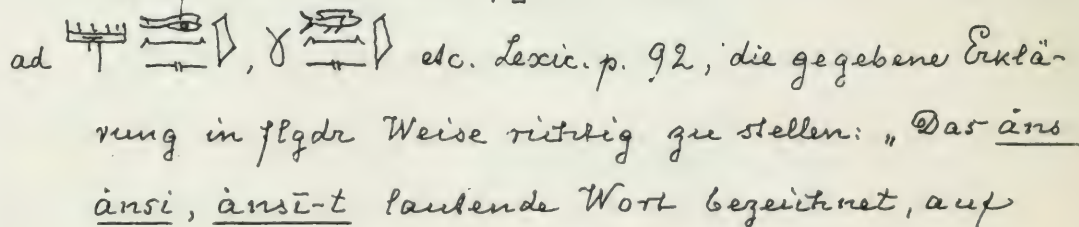 ad , etc. Lexic. p. 92, die gegebene Erklä-
rung in flgdr Weise richtig zu stellen: „Das ȧns
ȧnsi, ȧnsī-t lautende Wort bezeichnet, auf